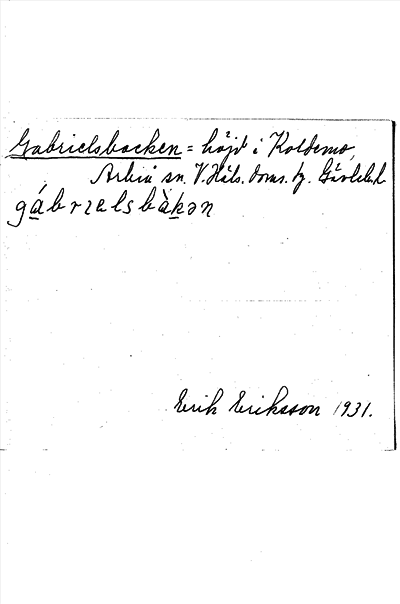 Gabrielsbacken = höjd i Koldemo,
Arbrå sn. V. Häls. doms. h. Gävlebl. l.
gábrɪelsbàkən
Erik Eriksson 1931.